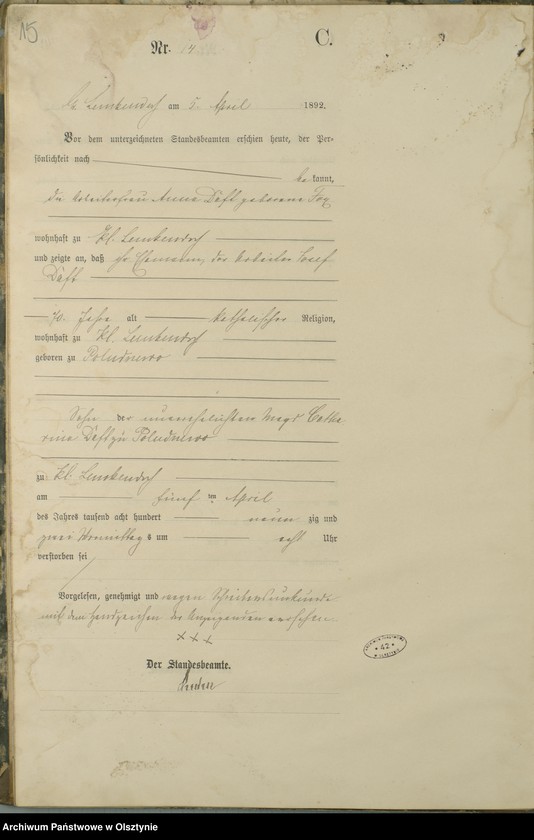 15
Nr. 14
C.
Lemkendorf am 5. April 1892.
Vor dem unterzeichneten Standesbeamten erschien heute, der Per-
sönlichkeit nach
be kannt,
die Arbeiterfrau Anna geborene Fox
wohnhaft zu Kl. Lemkendorf
und zeigte an, daß ihr Ehemann, der Arbeiter Josef
70 Jahre alt katholischer Religion,
wohnhaft zu Kl. Lemkendorf
geboren zu Poludniewo
Sohn der unverehelichten Magd Catha
rina zu Poludniewo
zu Kl. Lemkendorf
am fünf ten April
des Jahres tausend acht hundert neun zig und
zwei Vormittag s um acht Uhr
verstorben sei
Vorgelesen, genehmigt und wegen Schreibensunkunde
mit dem Handzeichen der Anzeigenden versehen
+++
Der Standesbeamte.
42
Archiwum Państwowe w Olsztynie